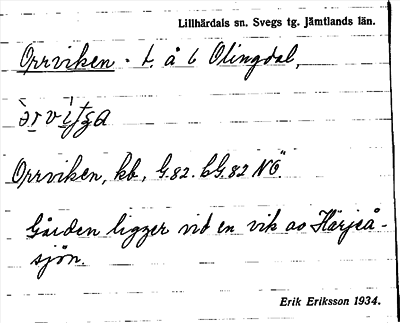 Lillhärdals sn. Svegs tg. Jämtlands län.
Orrviken - t. å 6 Olingdal,
Orrviken, kb., G.82. bG.82 NÖ.
Gården ligger vid en vik av Härjeå-
sjön.
Erik Eriksson 1934.